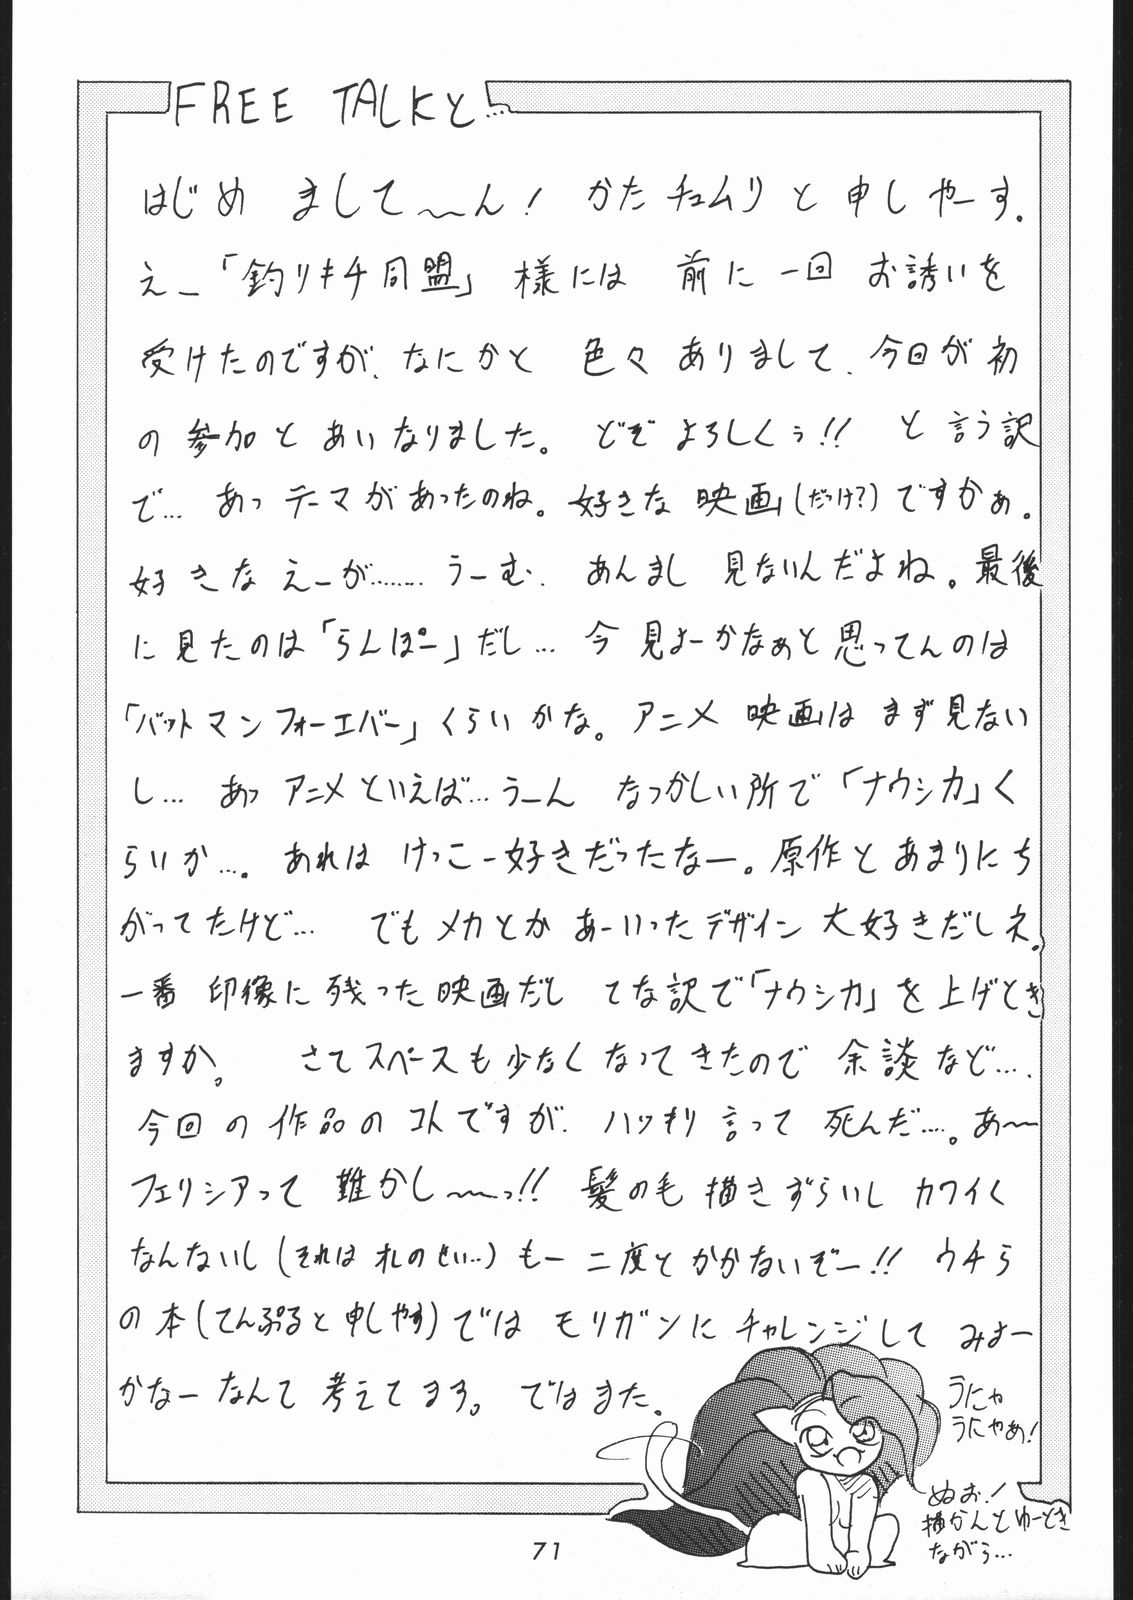 FREE TALKと…
はじめ まして〜〜ん! かたチュムリ と 申し やーす.
え_「釣りキチ同盟」様には 前に 一回 お誘いを
受けたのですが、なにかと 色々 ありまして、今回が初
の 参加と あいなりました。 どぞ よろしくぅ!! と 言う訳
で… あっ テーマがあったのね。好きな 映画(だっけ?)ですかぁ.
好きな えーが…… うーむ、 あんまし 見ないんだよね。最後
に 見たのは「らんぽー」だし… 今 見よーかなぁと 思ってんのは
「バットマン フォーエバー」くらいかな。アニメ 映画は まず見ない
し… あっ アニメといえば…うーん なつかしい所で「ナウシカ」く
らいか…. あれは けっこー好きだったなー。原作と あまりにち
がってたけど… でも メカとか あーいったデザイン 大好きだしネ.
一番 印像に 残った 映画だし てな訳で「ナウシカ」を上げとき
ますか。 さてスペースも少なくなってきたので 余談など….
今回の作品のコトですが、ハッキリ言って 死んだ…。あ〜〜
フェリシアって 難かし〜〜っ!! 髪の毛 描きずらいし カワイく
なんないし(それは オレのせい…)もー 二度と かかないぞー!! ウチら
の本(てんぷると 申しやす)では モリガンに チャレンジして みよー
かなー なんて 考えてます。 では また.
うにゃ
うにゃあ!
ぬお!
描かんとゆーとき
ながら…
71